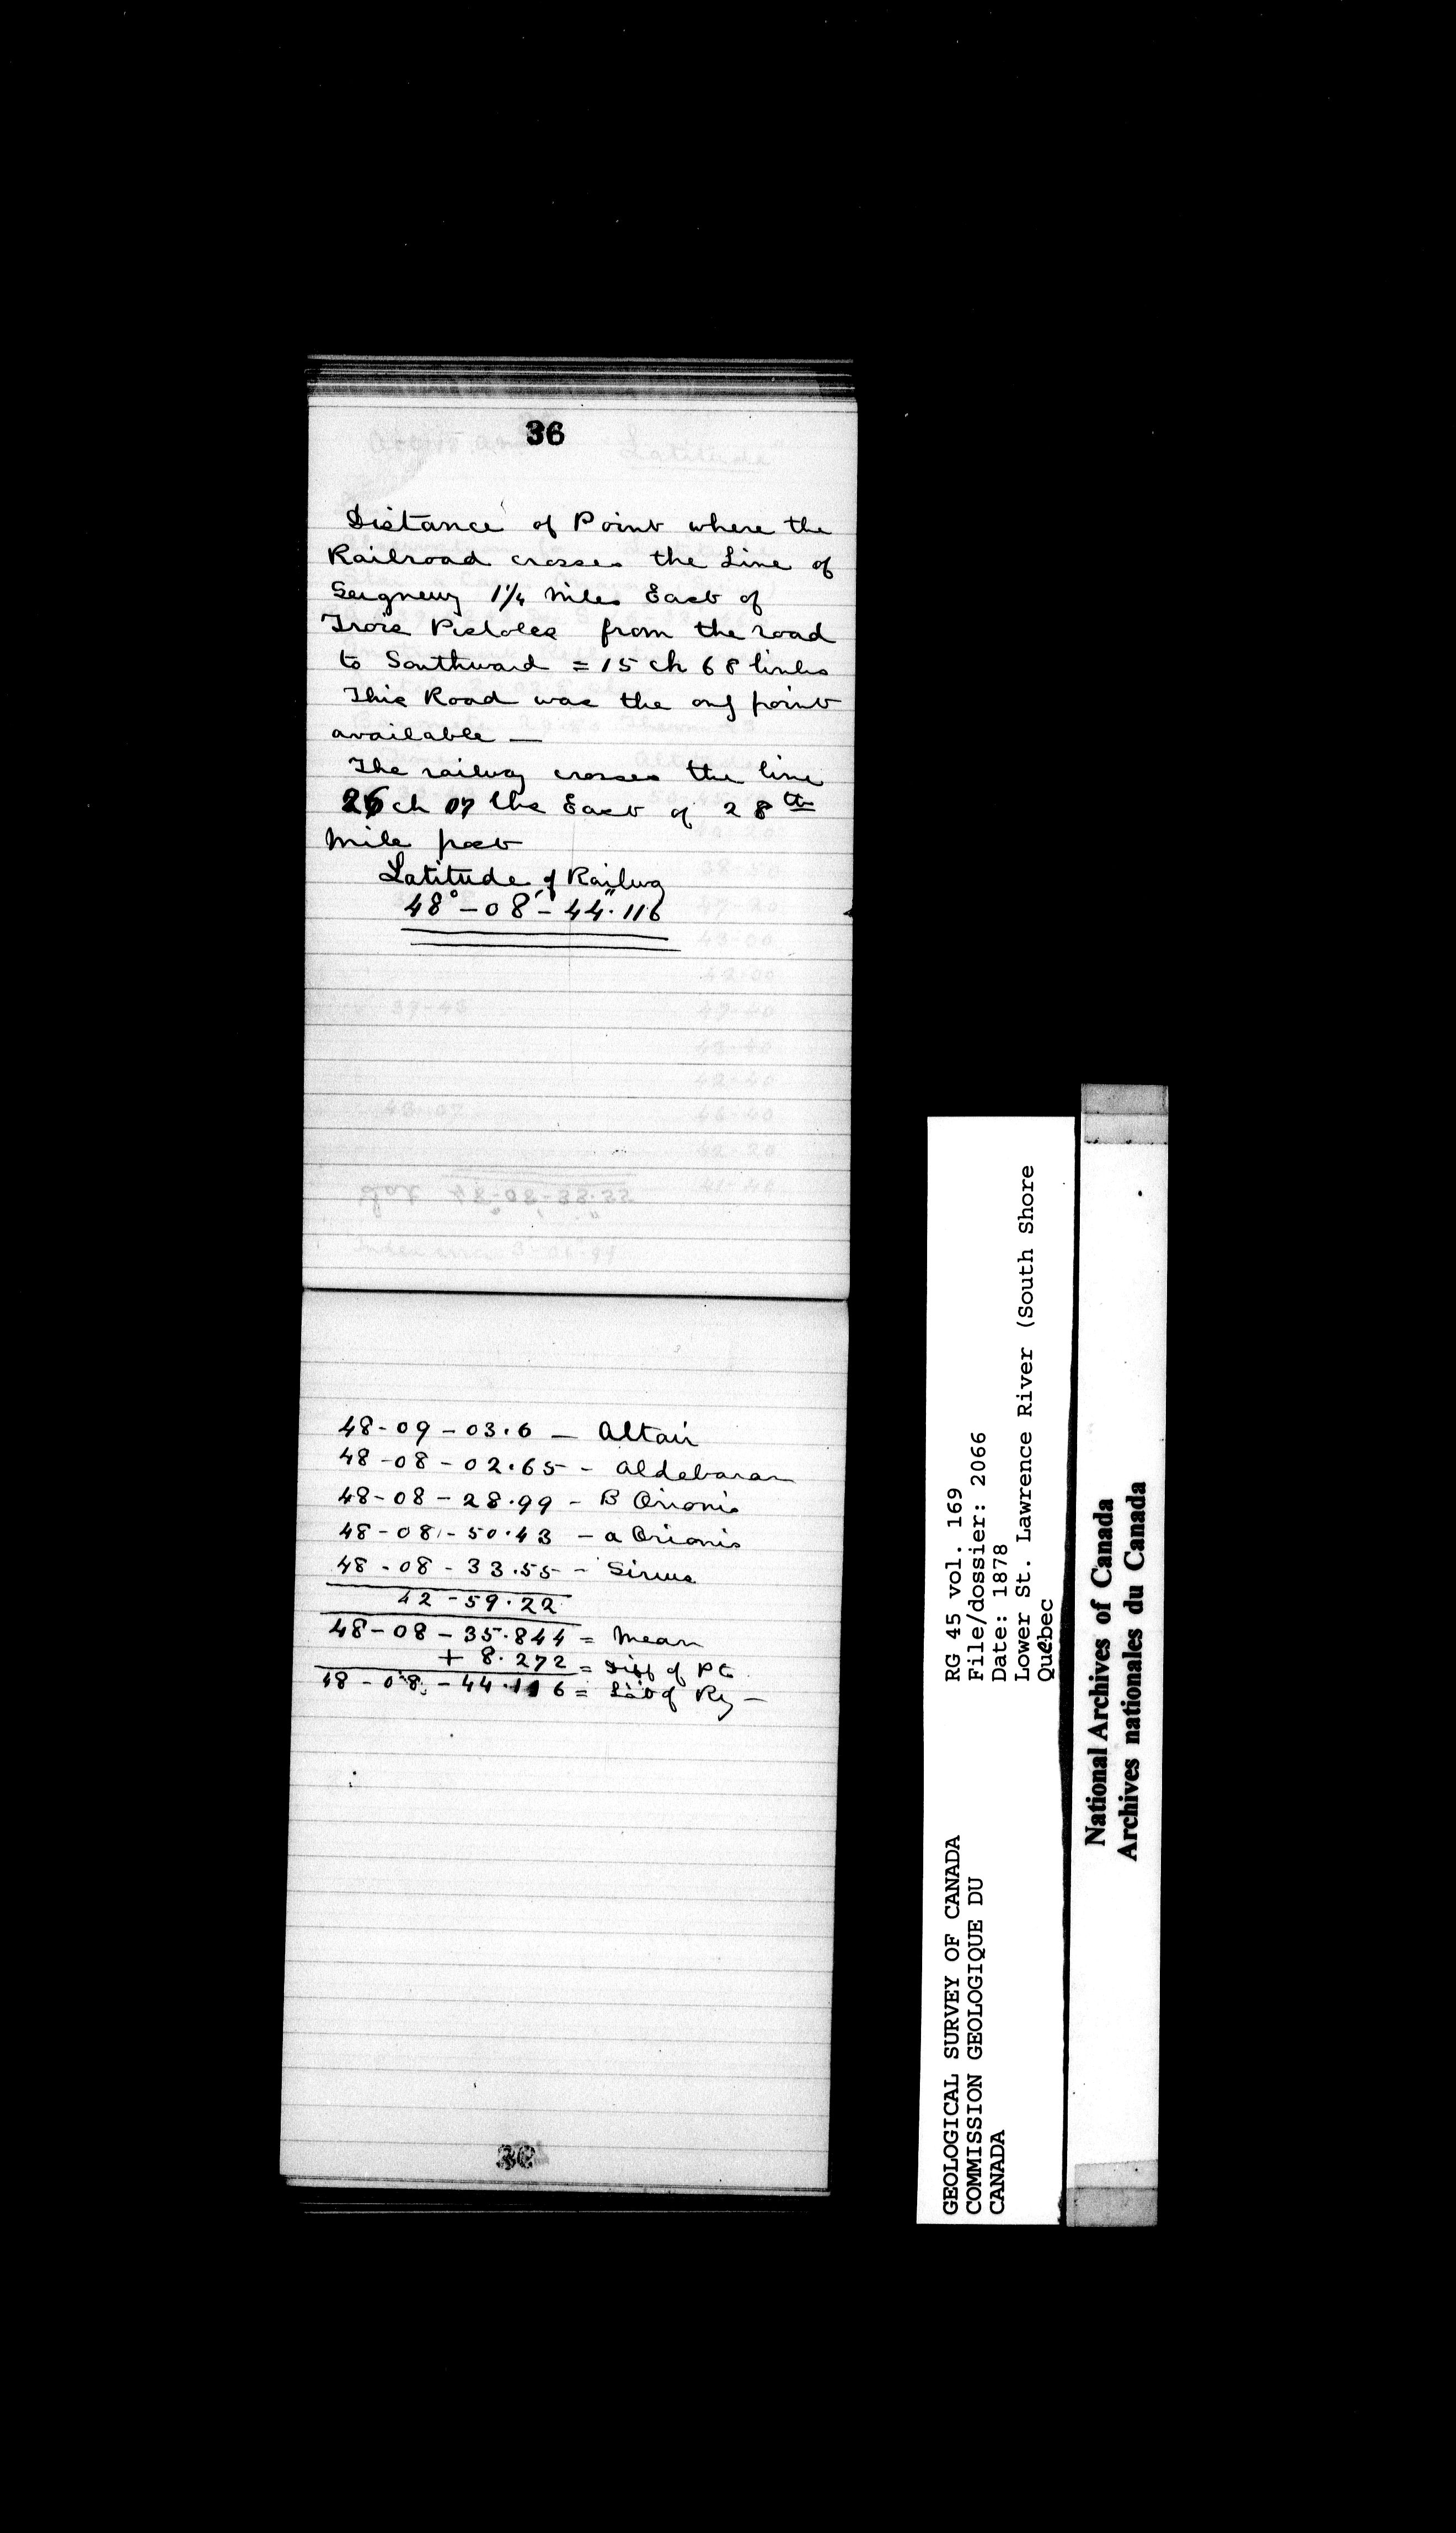 36
Distance of Point where the
Railroad crosses the Line of
Seigneury 1¼ miles East of
Trois Pistoles from the road
to Southward = 15 ch 68 links
This Road was the only point
available —
The railway crosses the line
26 ch 07 lks East of 28th
Mile post
Latitude of Railway
48° - 08' - 44".116
48-09-03.6 — Altair
48-08-02.65 - Aldebaran
48-08-28.99 - B Orionis
48-08-50.43 - a Orionis
48-08-33.55 - Sirius
42-59.22
48-08-35.844 = Mean
+ 8.272 = Diff of Pt.
48-08-44.116 = Lat of Ry —
GEOLOGICAL SURVEY OF CANADA
COMMISSION GEOLOGIQUE DU
CANADA
RG 45 vol. 169
File/dossier: 2066
Date: 1878
Lower St. Lawrence River (South Shore
Québec
National Archives of Canada
Archives nationales du Canada